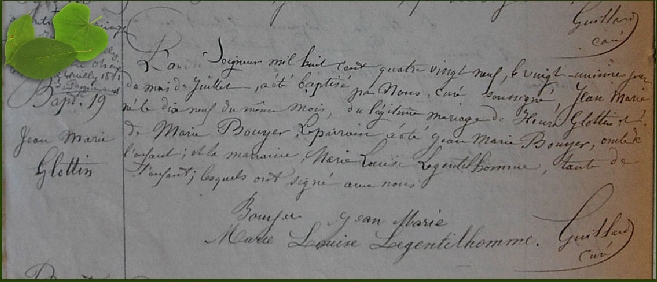 Guillard
curé
Bapt. 19
Jean Marie
Glottin
L'an du Seigneur mil huit cent quatre vingt neuf, le vingt-unième jour
du mois de Juillet, a été baptisé par Nous, curé soussigné Jean Marie
né le dix neuf du même mois, du légitime mariage de Glottin et
de Marie Bouyer. Le parrain a été Jean Marie Bouyer, oncle de
l'enfant; et la marraine, Marie Louise Legentilhomme, tante de
l'enfant; lesquels ont signé avec nous
Bouyer Jean Marie
Marie Louise Legentilhomme. Guillard
curé